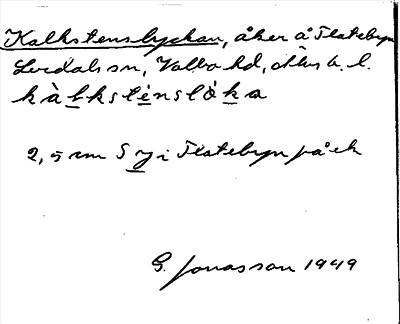 Kalkstenslyckan, åker å Flatebyn
Lerdals sn, Valbo hd, Älvsb. l.
kàlksténslòka
2,5 mm S y i Flatebyn på ek
G. Jonasson 1949